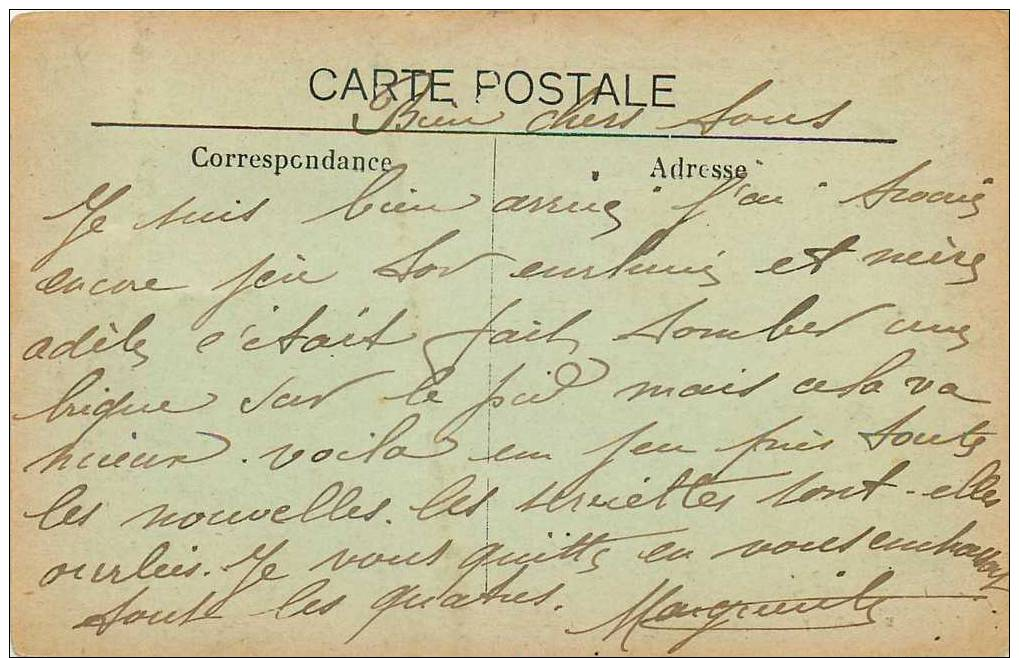 CARTE POSTALE
Bien chers tous
Correspondance
Adresse
Je suis bien arrivé j'ai trouvé
encore père enrhumé et mère
adèle s'était fait tomber une
brique sur le pied mais cela va
mieux. voilà un peu près toute
les nouvelles. les serviettes sont-elles
ourlées. Je vous quitte en vous embrassant
tout les quatres. Marguerite